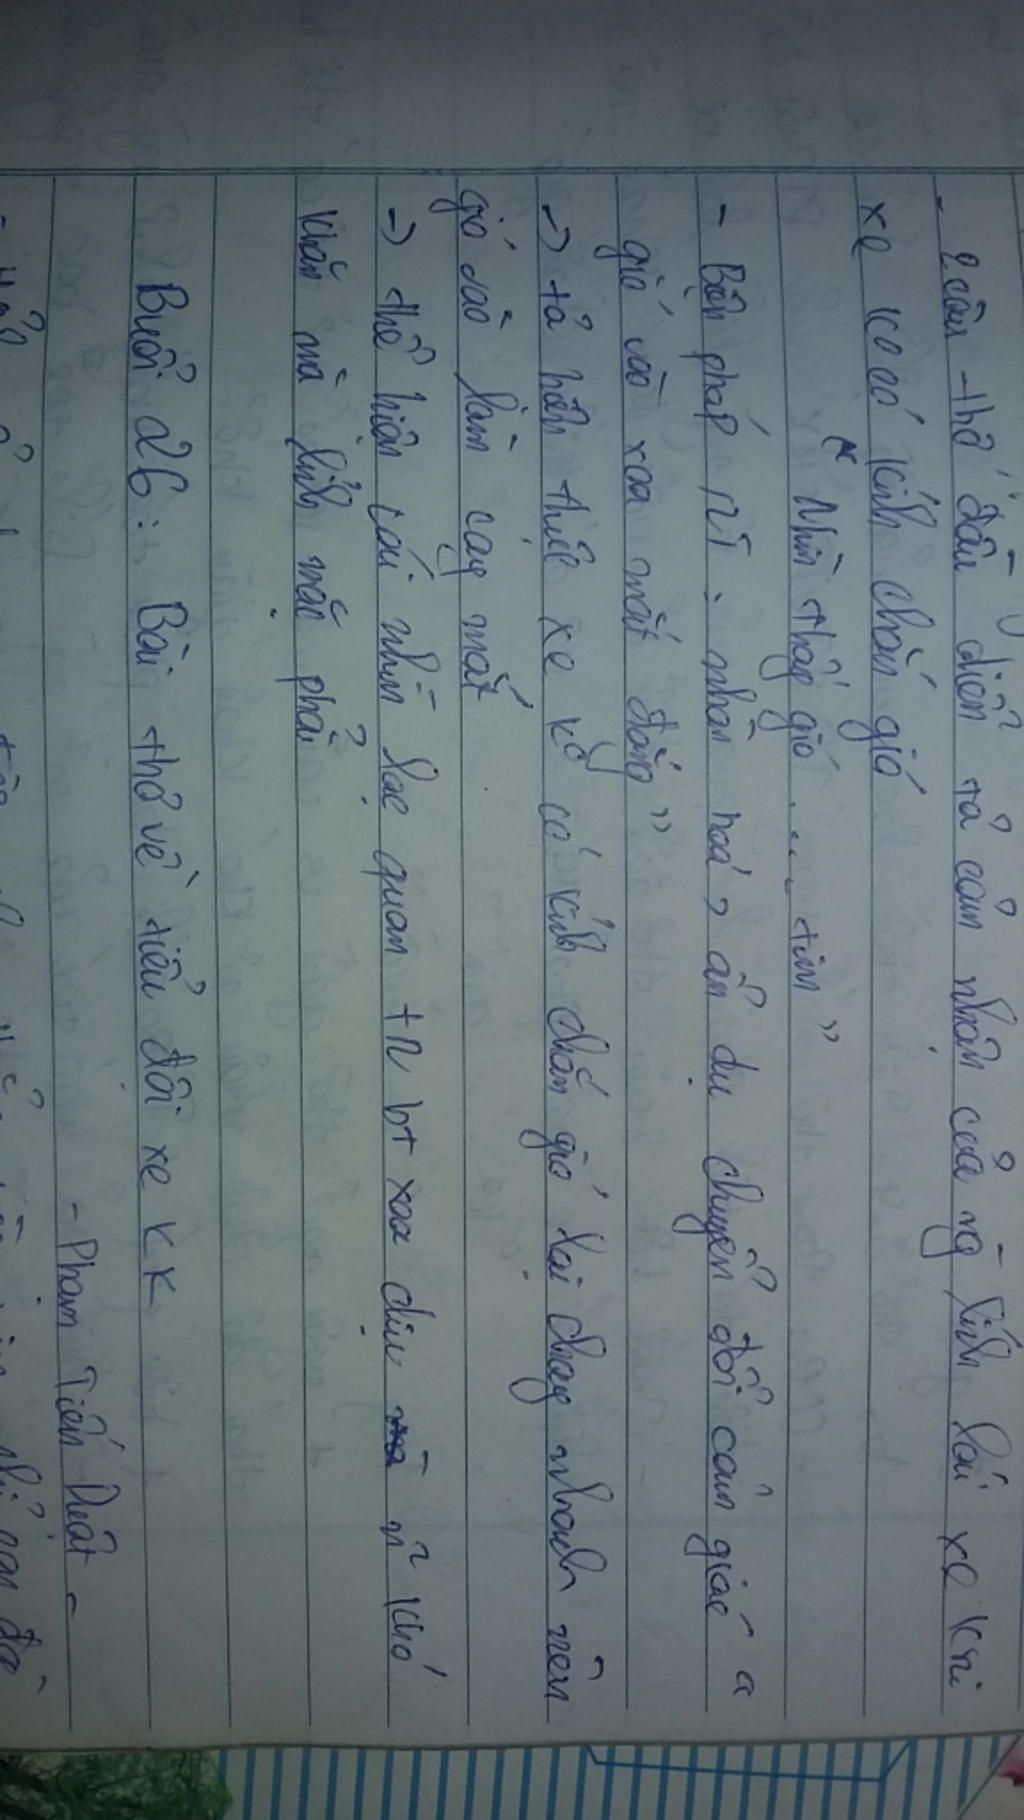 - 2 câu thơ đầu diễn tả cảm nhận của ng lính lái xe khi
xe ko có kính chắn gió
" Nhìn thấy gió ... tim "
- Biện pháp NT : nhân hoá, ẩn dụ chuyển đổi cảm giác "
gió vào xoa mắt đắng "
-> tả hiện thực xe kg có kính chắn gió lái chạy nhanh nên
gió vào làm cay mắt
-> thể hiện cái nhìn lạc quan tn bt xoa dịu n~ khó
khăn mà lính mắc phải
Buổi 26 : Bài thơ về tiểu đội xe k k
- Phạm Tiến Duật -